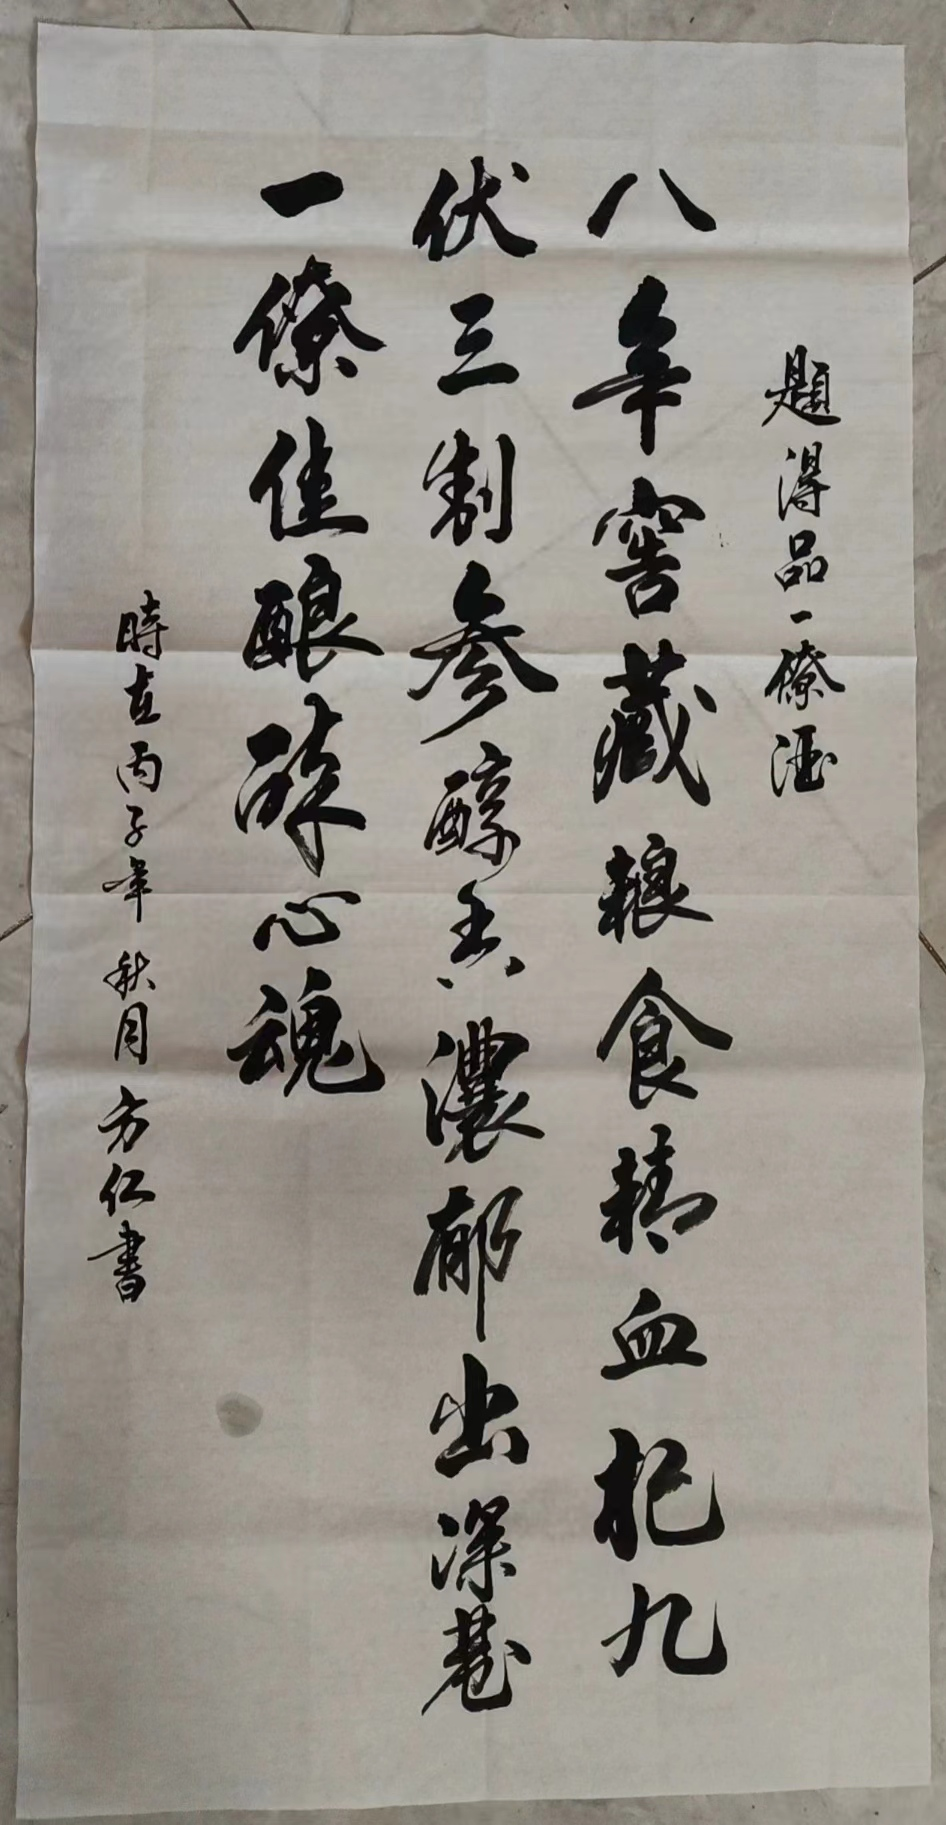 題得品一僚酒
八年窖藏粮食精血把九
伏三制参醇香濃郁出深巷
一僚佳酿醉心魂
時在丙子年秋月方仁書